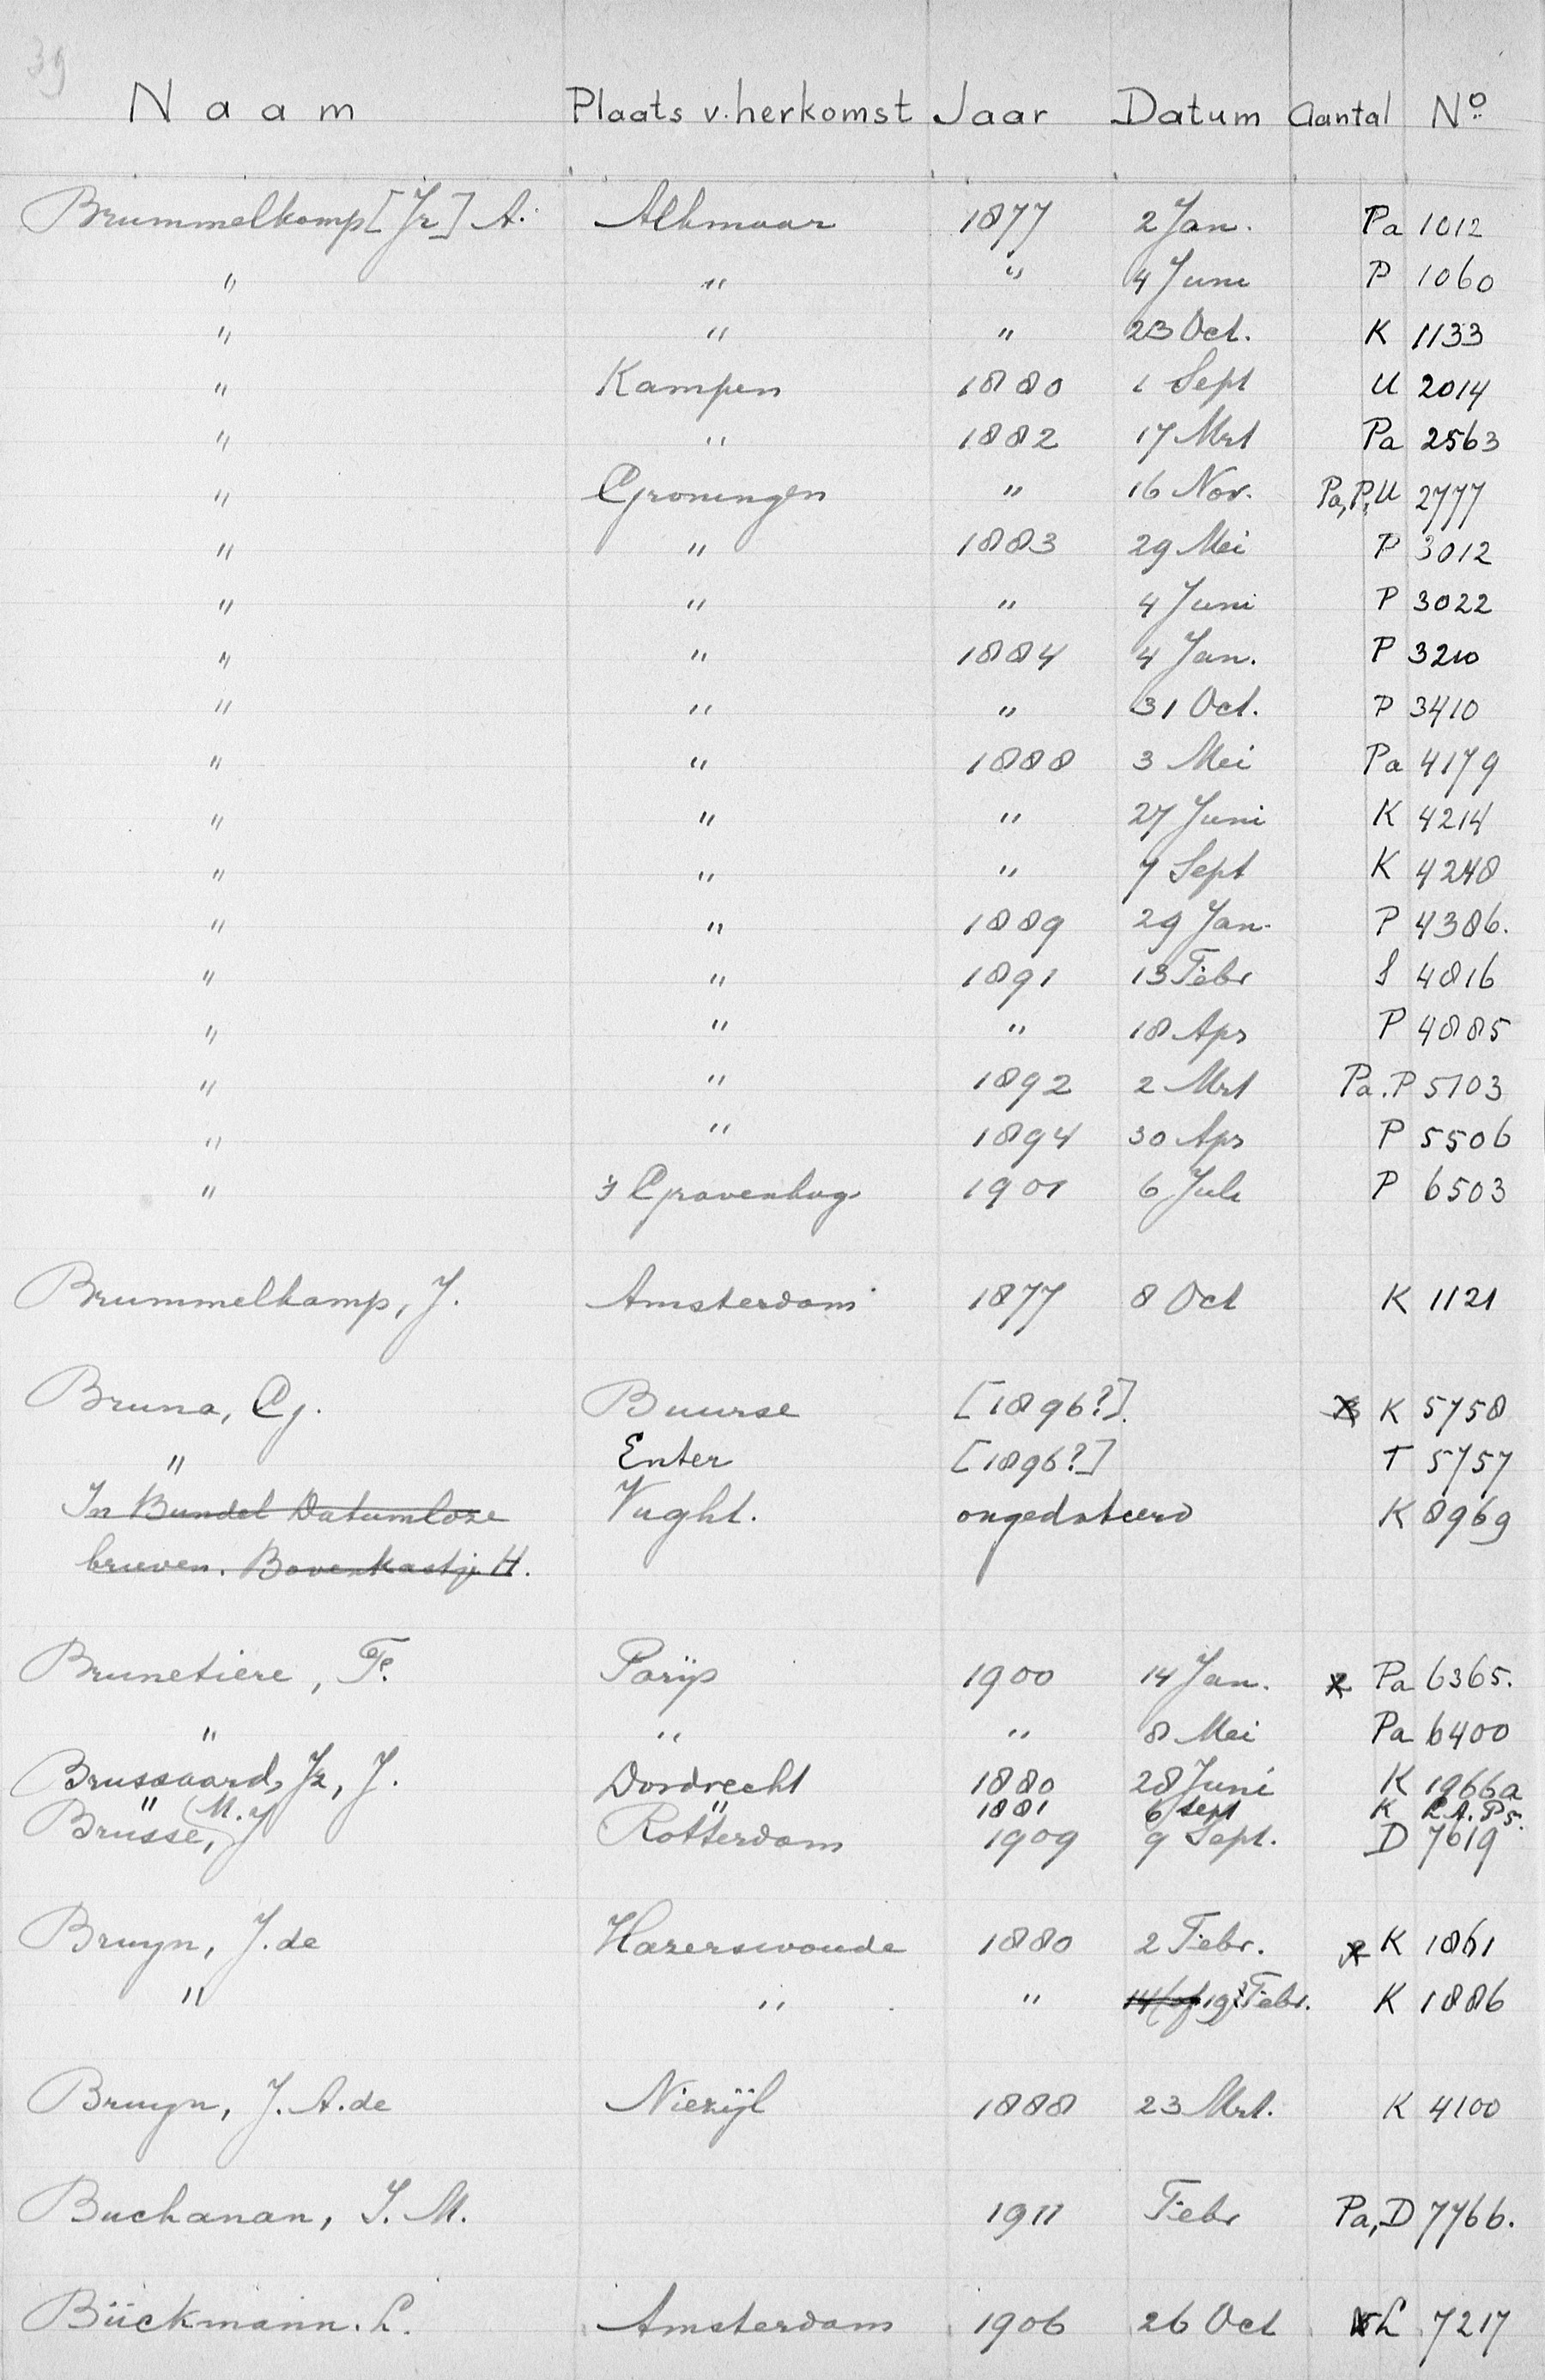 39
Naam Plaats v. herkomst Jaar Datum Aantal No
Brummelkamp [Jr] A. Alkmaar 1877 2 Jan. Pa 1012
" " " 4 Juni P 1060
" " " 23 Oct. K 1133
" Kampen 1880 1 Sept U 2014
" " 1882 17 Mrt Pa 2563
" Groningen " 16 Nov. Pa, P, U 2777
" " 1883 29 Mei P 3012
" " " 4 Juni P 3022
" " 1884 4 Jan. P 3210
" " " 31 Oct. P 3410
" " 1888 3 Mei Pa 4179
" " " 27 Juni K 4214
" " " 7 Sept K 4248
" " 1889 29 Jan. P 4386.
" " 1891 13 Febr S 4816
" " " 18 Apr P 4885
" " 1892 2 Mrt Pa. P 5103
" " 1894 30 Apr P 5506
" 's Gravenhag 1901 6 Juli P 6503
Brummelkamp, J. Amsterdam 1877 8 Oct K 1121
Bruna, G. Buurse [1896?]. K 5758
" Enter [1896?] T 5757
In Bundel Datumloze Vught. ongedateerd K 8969
brieven. Bovenkastje H.
Brunetière, F. Parijs 1900 14 Jan. Pa 6365.
" " " 8 Mei Pa 6400
Brussaard, Jr, J. Dordrecht 1880 28 Juni K 1966a
" " 1881 6 Sept K R.A. P5.
Brusse, M. J Rotterdam 1909 9 Sept. D 7619
Bruyn, J. de Hazerswoude 1880 2 Febr. K 1861
" " " 14 (of 19?) Febr. K 1886
Bruyn, J. A. de Niezijl 1888 23 Mrt. K 4100
Buchanan, J. M. 1911 Febr Pa, D 7766.
Bückmann. L. Amsterdam 1906 26 Oct L 7217